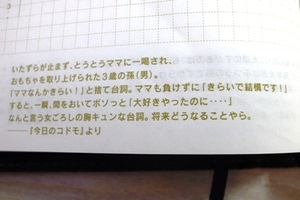 3
いたずらが止まず、とうとうママに一喝され、
おもちゃを取り上げられた3歳の孫(男)。
「ママなんかきらい!」と捨て台詞。ママも負けずに「きらいで結構です!」
すると、一瞬、間をおいてボソっと「大好きやったのに‥‥」
なんと言う女ごろしの胸キュンな台詞。将来どうなることやら。
──『今日のコドモ』より